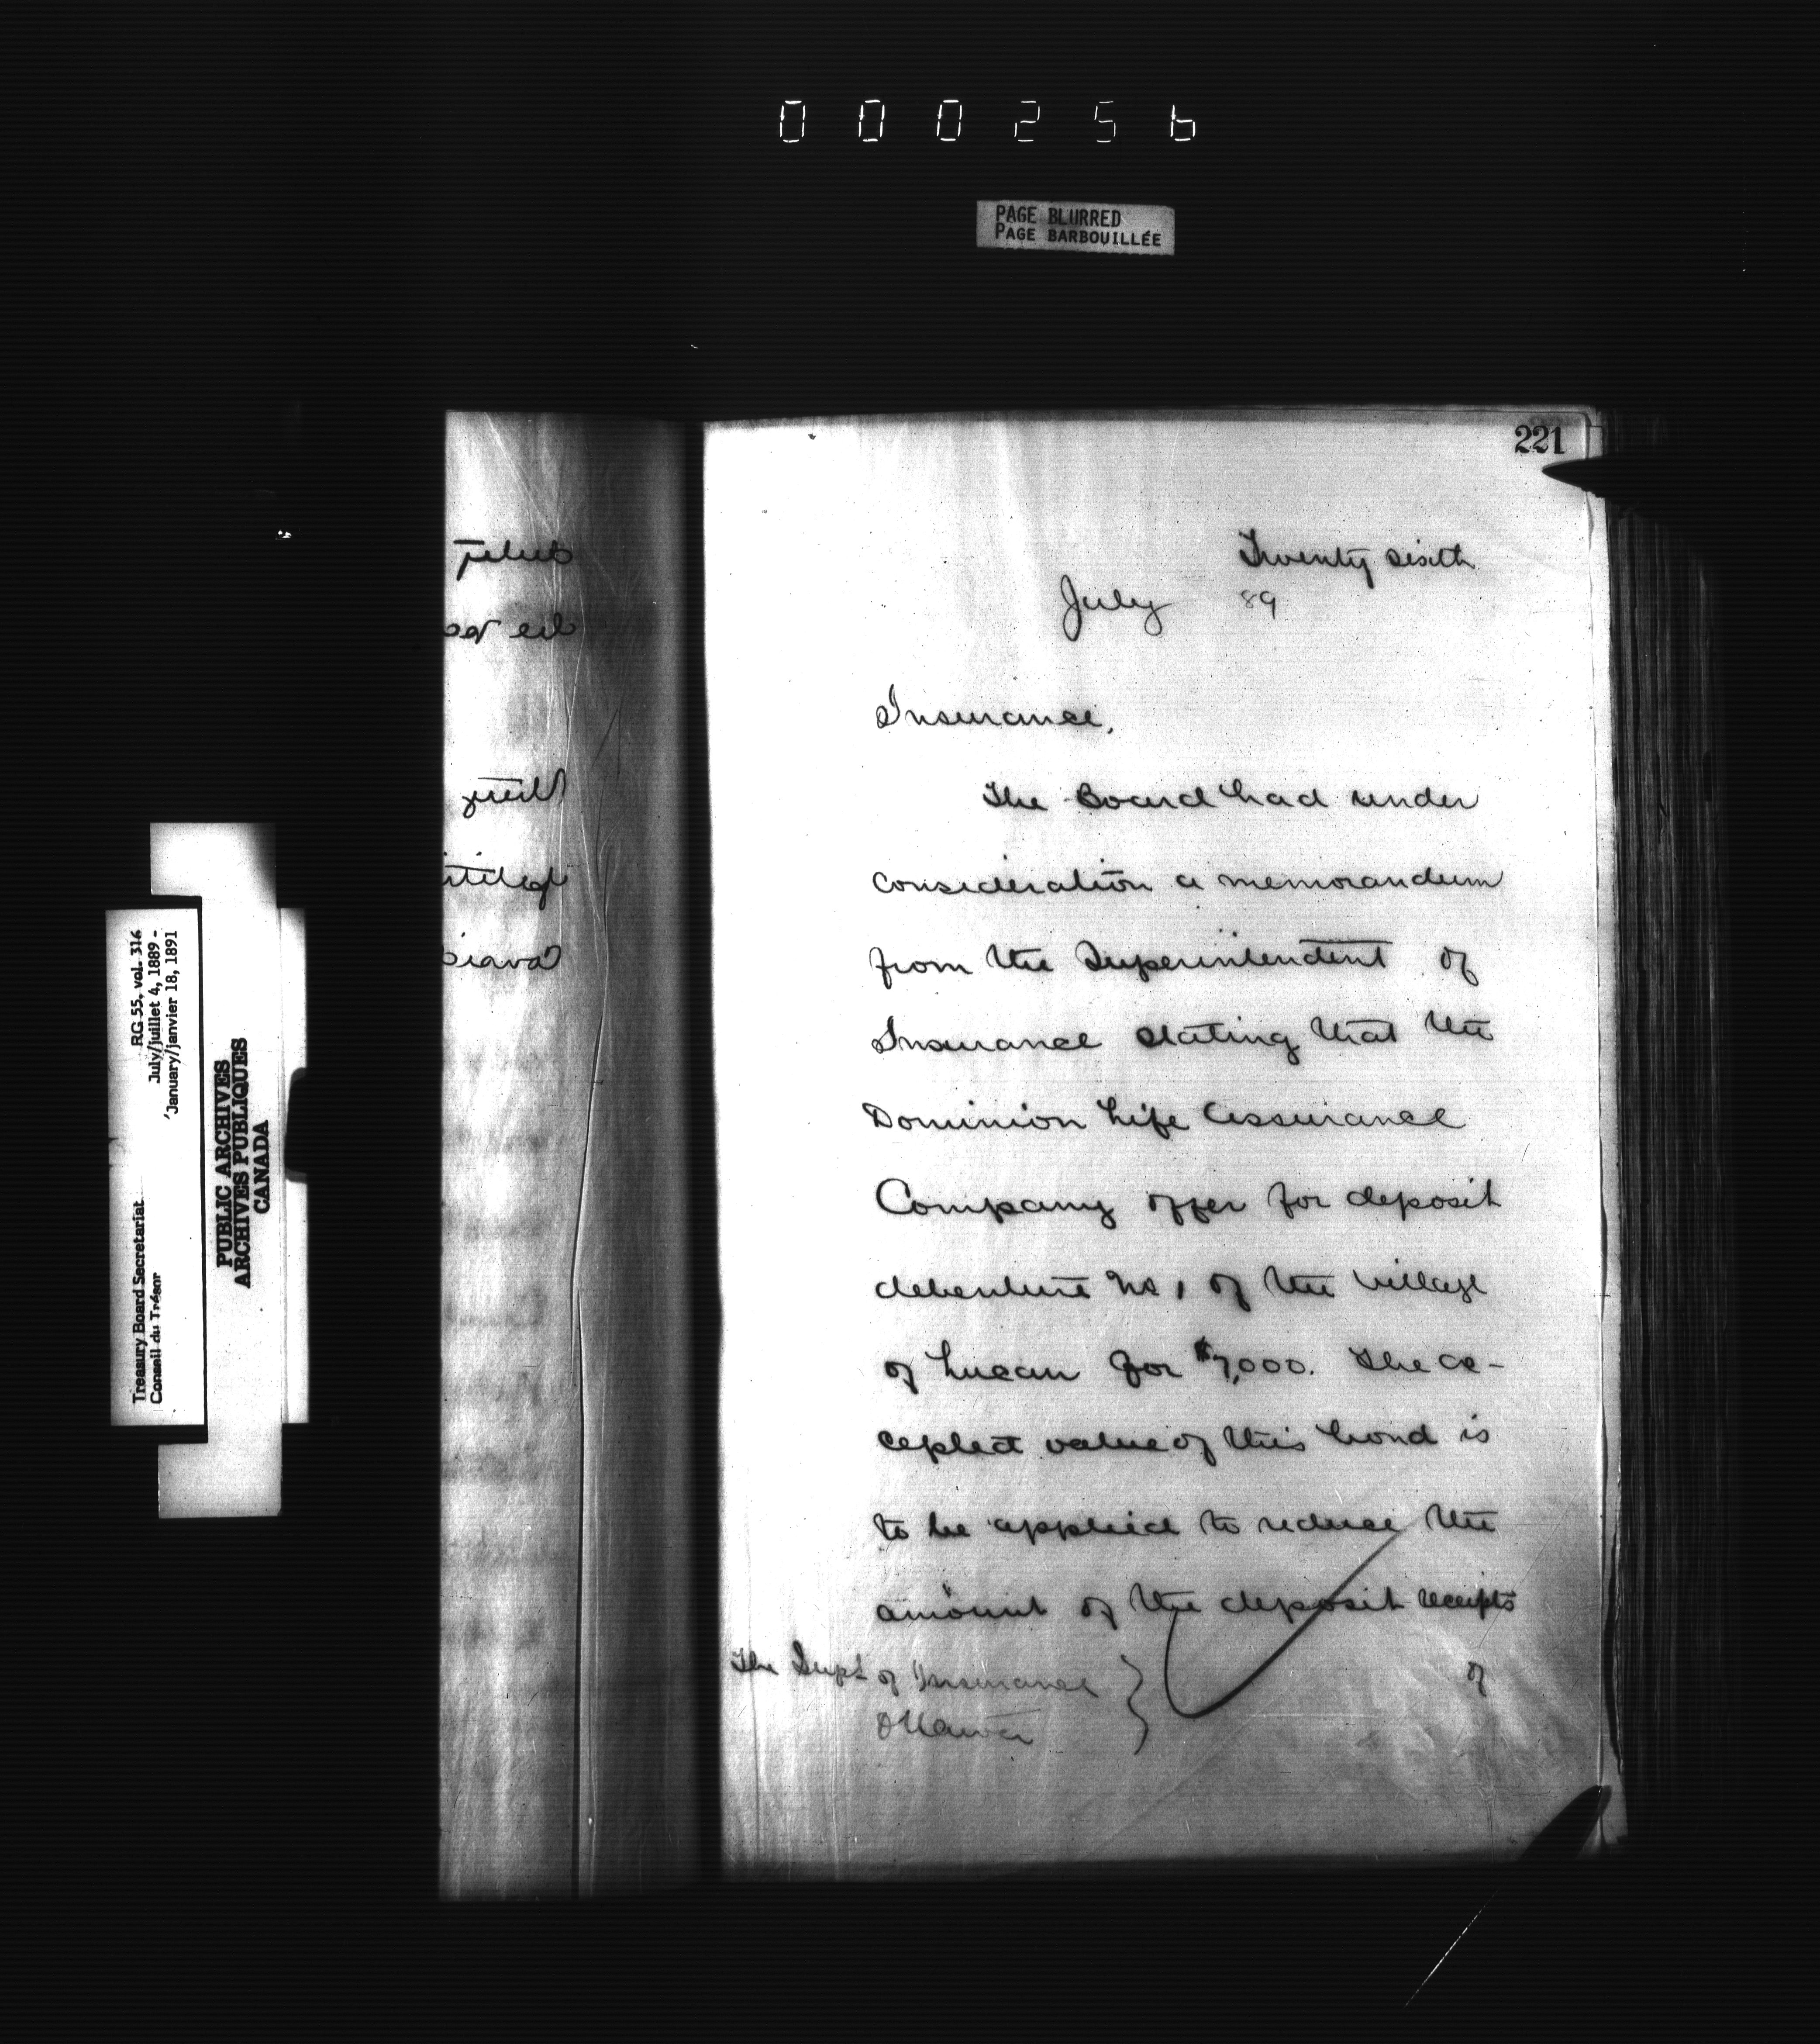 000256
PAGE BLURRED
PAGE BARBOUILLÉE
221
Twenty sixth
July 89
Insurance.
The Board had under
consideration a memorandum
from the Superintendent of
Insurance stating that the
Dominion Life Assurance
Company offer for deposit
debenture No 1 of the Village
of Lucan for $7,000. The ac-
cepted value of this bond is
to be applied to reduce the
amount of the deposit receipts
of
The Supt of Insurance
Ottawa
RG 55, vol. 316
July/juillet 4, 1889 -
January/janvier 18, 1891
Treasury Board Secretariat
Conseil du Trésor
PUBLIC ARCHIVES
ARCHIVES PUBLIQUES
CANADA